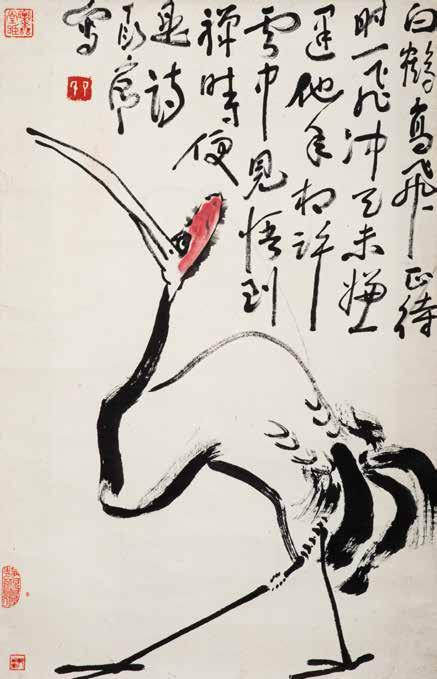 白鶴高飛正待
時一飛沖天未嫌
遲他年相許
雲中見悟到
禪時便
是詩
衍庸
寫